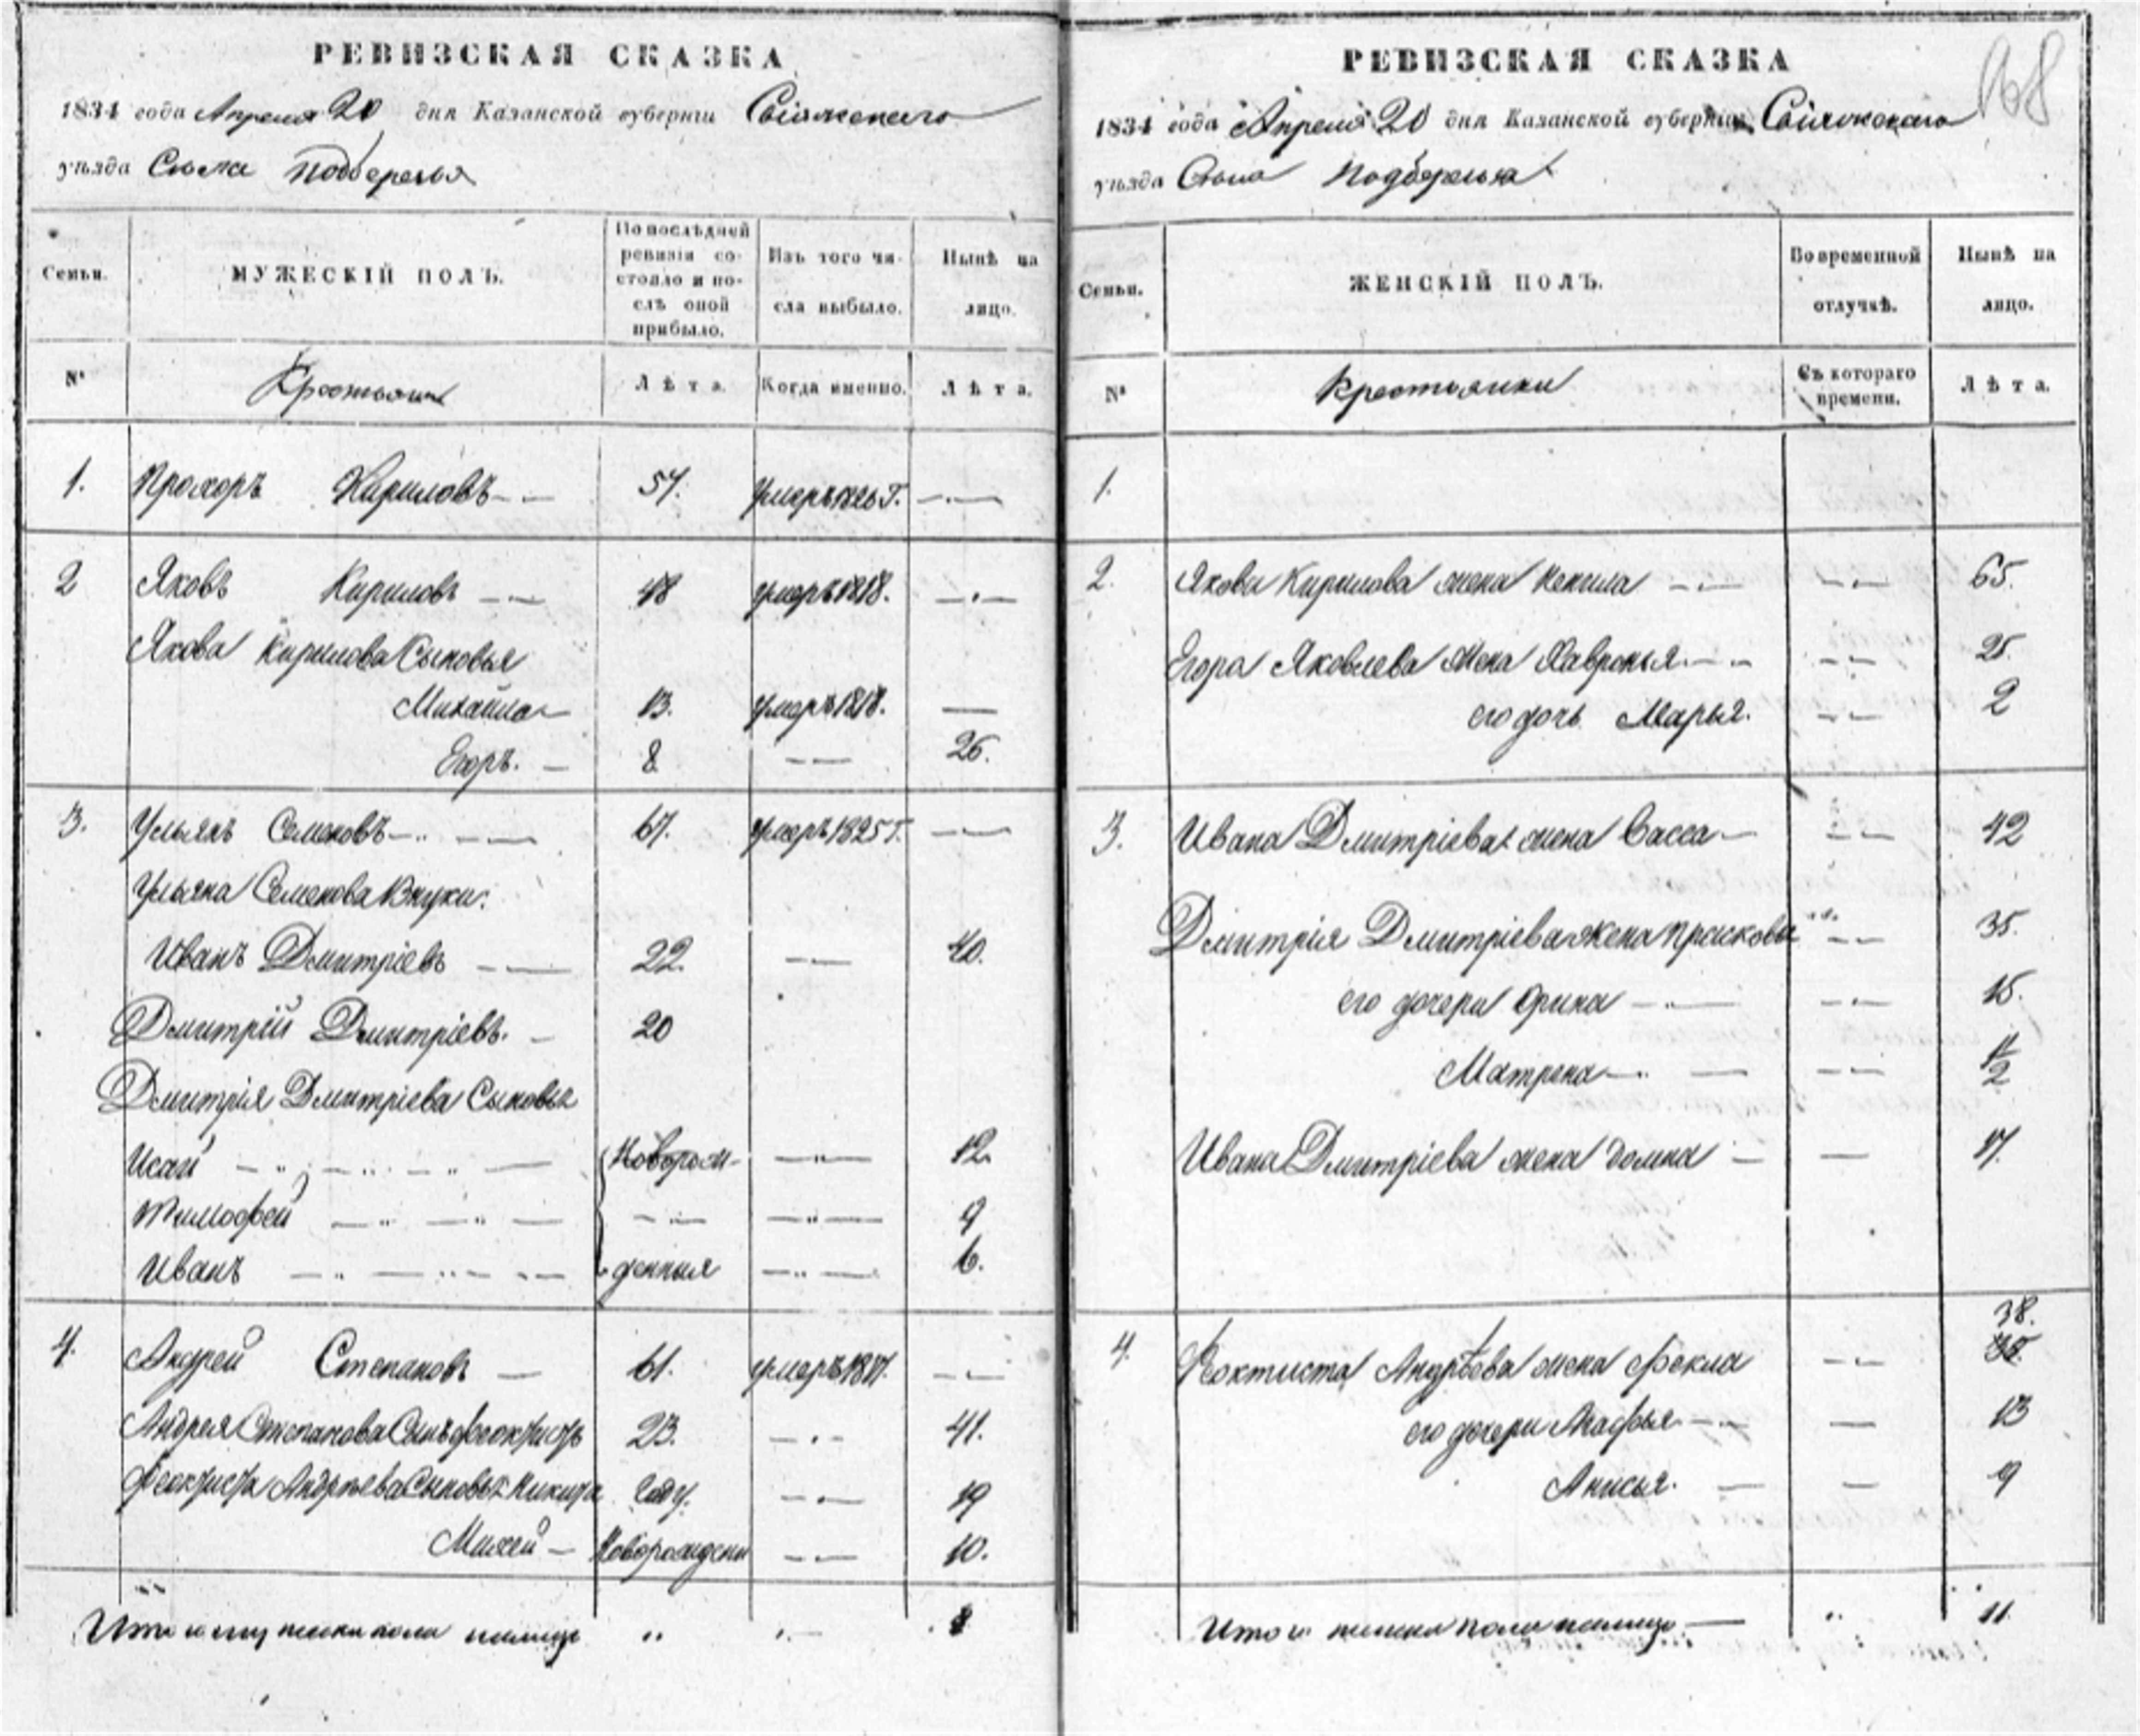 РЕВИЗСКАЯ СКАЗКА
1834 года Апреля 20 дня Казанской губернiи Свiяжскаго
уѣзда Села Подберезья
Семьи.
МУЖЕСКIЙ ПОЛЪ.
По послѣдней ревизiи состояло и послѣ оной прибыло.
Изъ того числа выбыло.
Нынѣ на лицо.
№
Крестьяни
Лѣта.
Когда именно.
Лѣта.
1. Прохоръ Кириловъ 57. умеръ 1826 Г.
2 Яковъ Кириловъ 48 умеръ 1818.
Якова Кирилова Сыновья
Михайла 13. умеръ 1818.
Егоръ. 8 26.
3. Ульянъ Семеновъ 67. умеръ 1825 Г.
Ульяна Семенова Внуки:
Иванъ Дмитрiевъ 22. 40.
Дмитрiй Дмитрiевъ. 20
Дмитрiя Дмитрiева Сыновья
Исай Наворож- 12.
Тимофей 9
Иванъ денныя 6.
4. Андрей Степановъ 61. умеръ
Андрея Степанова Сынъ Феоктистъ 23. 41.
Феоктиста Андрѣева Сыновья Никита Году. 19
Михей Наворожденн 10.
Итого мужеска пола налицо 8
РЕВИЗСКАЯ СКАЗКА
168
1834 года Апреля 20 дня Казанской губернiи Свiяжскаго
уѣзда Села Подберезья
Семьи.
ЖЕНСКIЙ ПОЛЪ.
Во временной отлучкѣ.
Нынѣ на лицо.
№
Крестьянки
Съ котораго времени.
Лѣта.
1.
2. Якова Кирилова жена 65.
Егора Яковлева жена Хавронья 25.
его дочь Марья. 2
3. Ивана Дмитрiева жена Васса 42
Дмитрiя Дмитрiева жена Прасковья 35.
его дочери Орина 15.
Матрена 1/2
Ивана Дмитрiева жена Домна 17.
38.
4. Феоктиста Андрѣева жена Фекла
его дочери Агафья 13
Анисья. 9
Итого женска пола налицо 11.